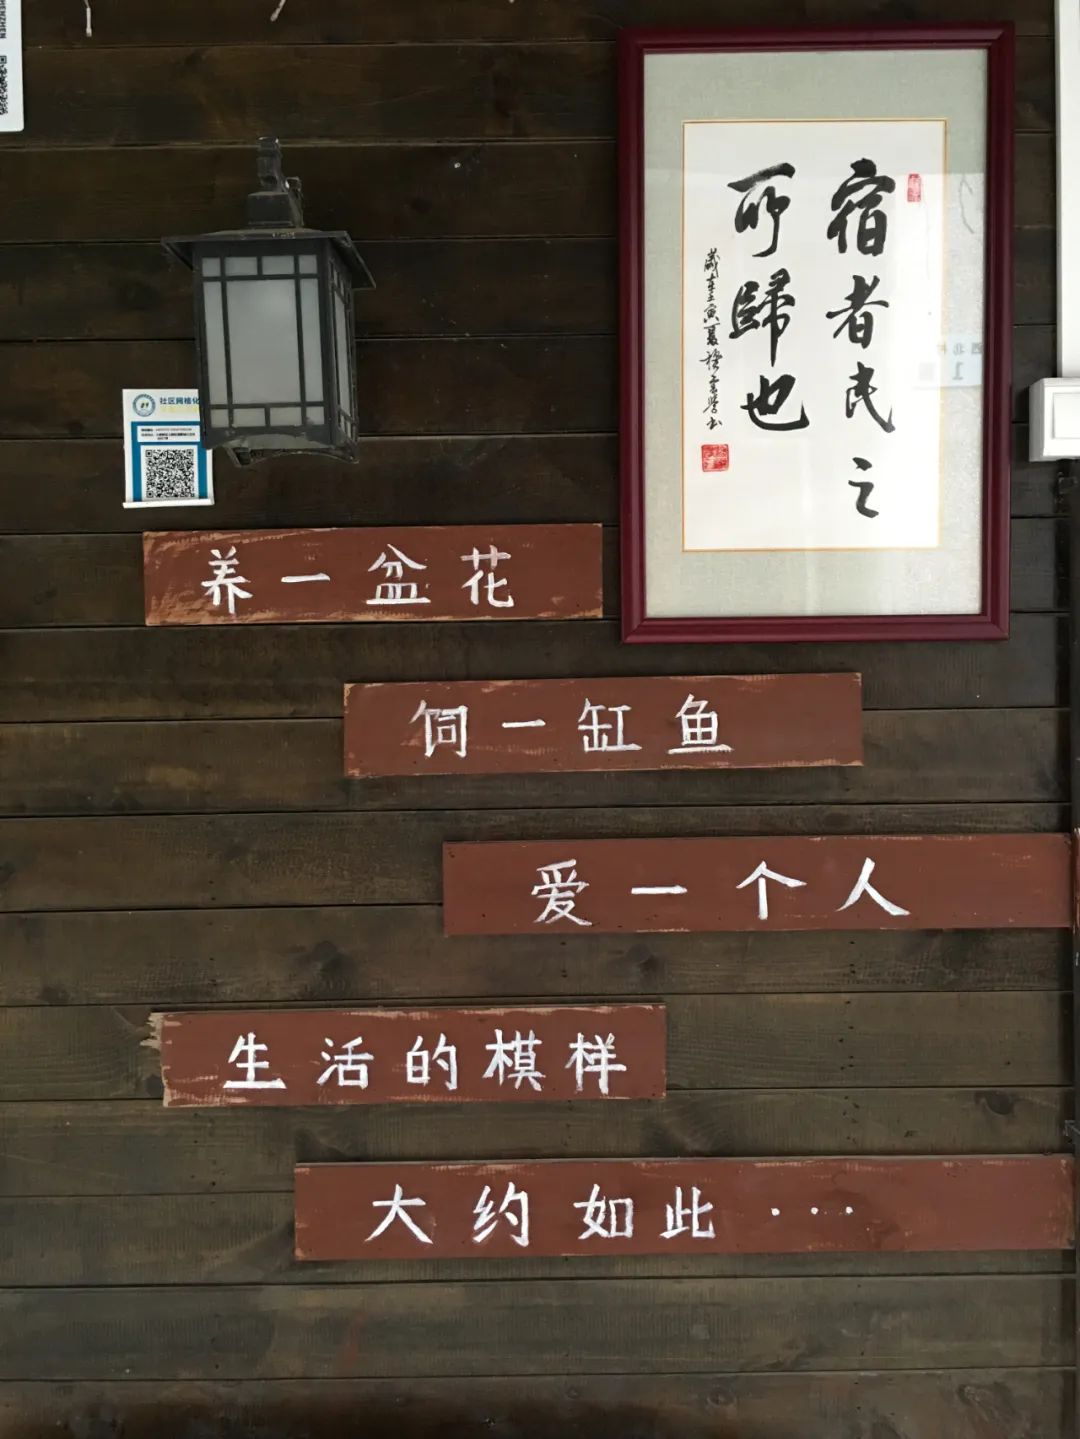 宿者民之
所歸也
歲在壬寅夏
社区网格化
养一盆花
饲一缸鱼
爱一个人
生活的模样
大约如此···